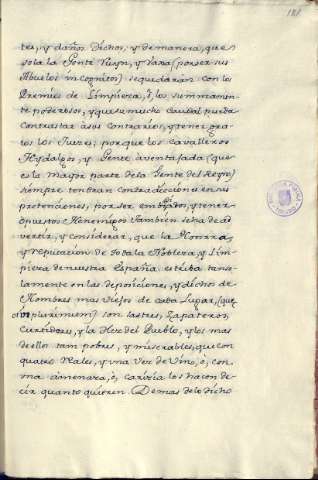 tes, y daños dichos, y demanera, que
sola la Gente Ruyn, y vaxa (por ser sus
Abuelos incognitos) se quedaran con los
Premios de Limpieza, ó, los summamen
te poderosos, y que su mucho caudal pueda
contrastar á sus contrarios, y tener gra
tos los Juezes; porque los Cavalleros
Hydalgos, y Gente aventajada (que
es la mayor parte dela Gente del Reyno)
siempre tendran contradiccion en sus
pretenciones, por ser embidiados, y tener
opuestos. Tambien se ha de ad
vertir, y considerar, que la Honrra,
y reputacion de toda la Nobleza, y Lim
pieza de nuestra España estriba tana
lamente en las deposiciones, y dichos de
Hombres mas viejos de cada Lugar, (que
plurimum) son sastres, Zapateros,
Curtidores, y la Hez del Pueblo, y los mas
dellos tan pobres, y miserables, que con
quatro Reales, y una Vez de Vino, ò, con
una amenaza, ò, caricia los hacen de
cir quanto quieren. Demas de lo dicho